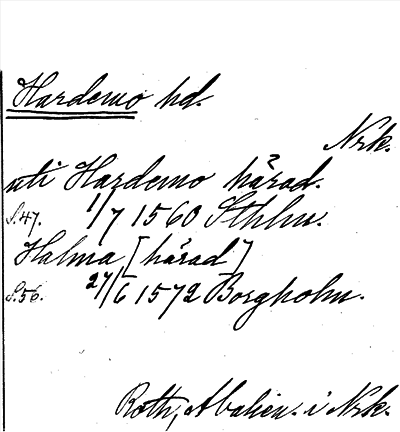 Hardemo hd.
Nrk.
uti Hardemo härad.
S.47. 1/7 1560 Sthlm.
Halma [härad]
S.56. 27/6 1572 Borgholm.
Roth, Abalien. i Nrk.